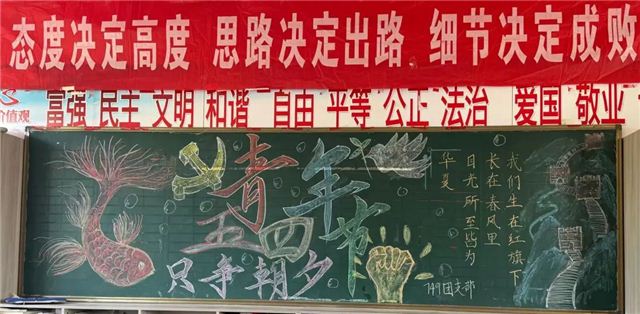 态度决定高度 思路决定出路 细节决定成败
价值观
富强 民主 文明 和谐 自由 平等 公正 法治 爱国 敬业
五四青年节
只争朝夕
我们生在红旗下
长在春风里
目光所至皆为
华夏
749团支部